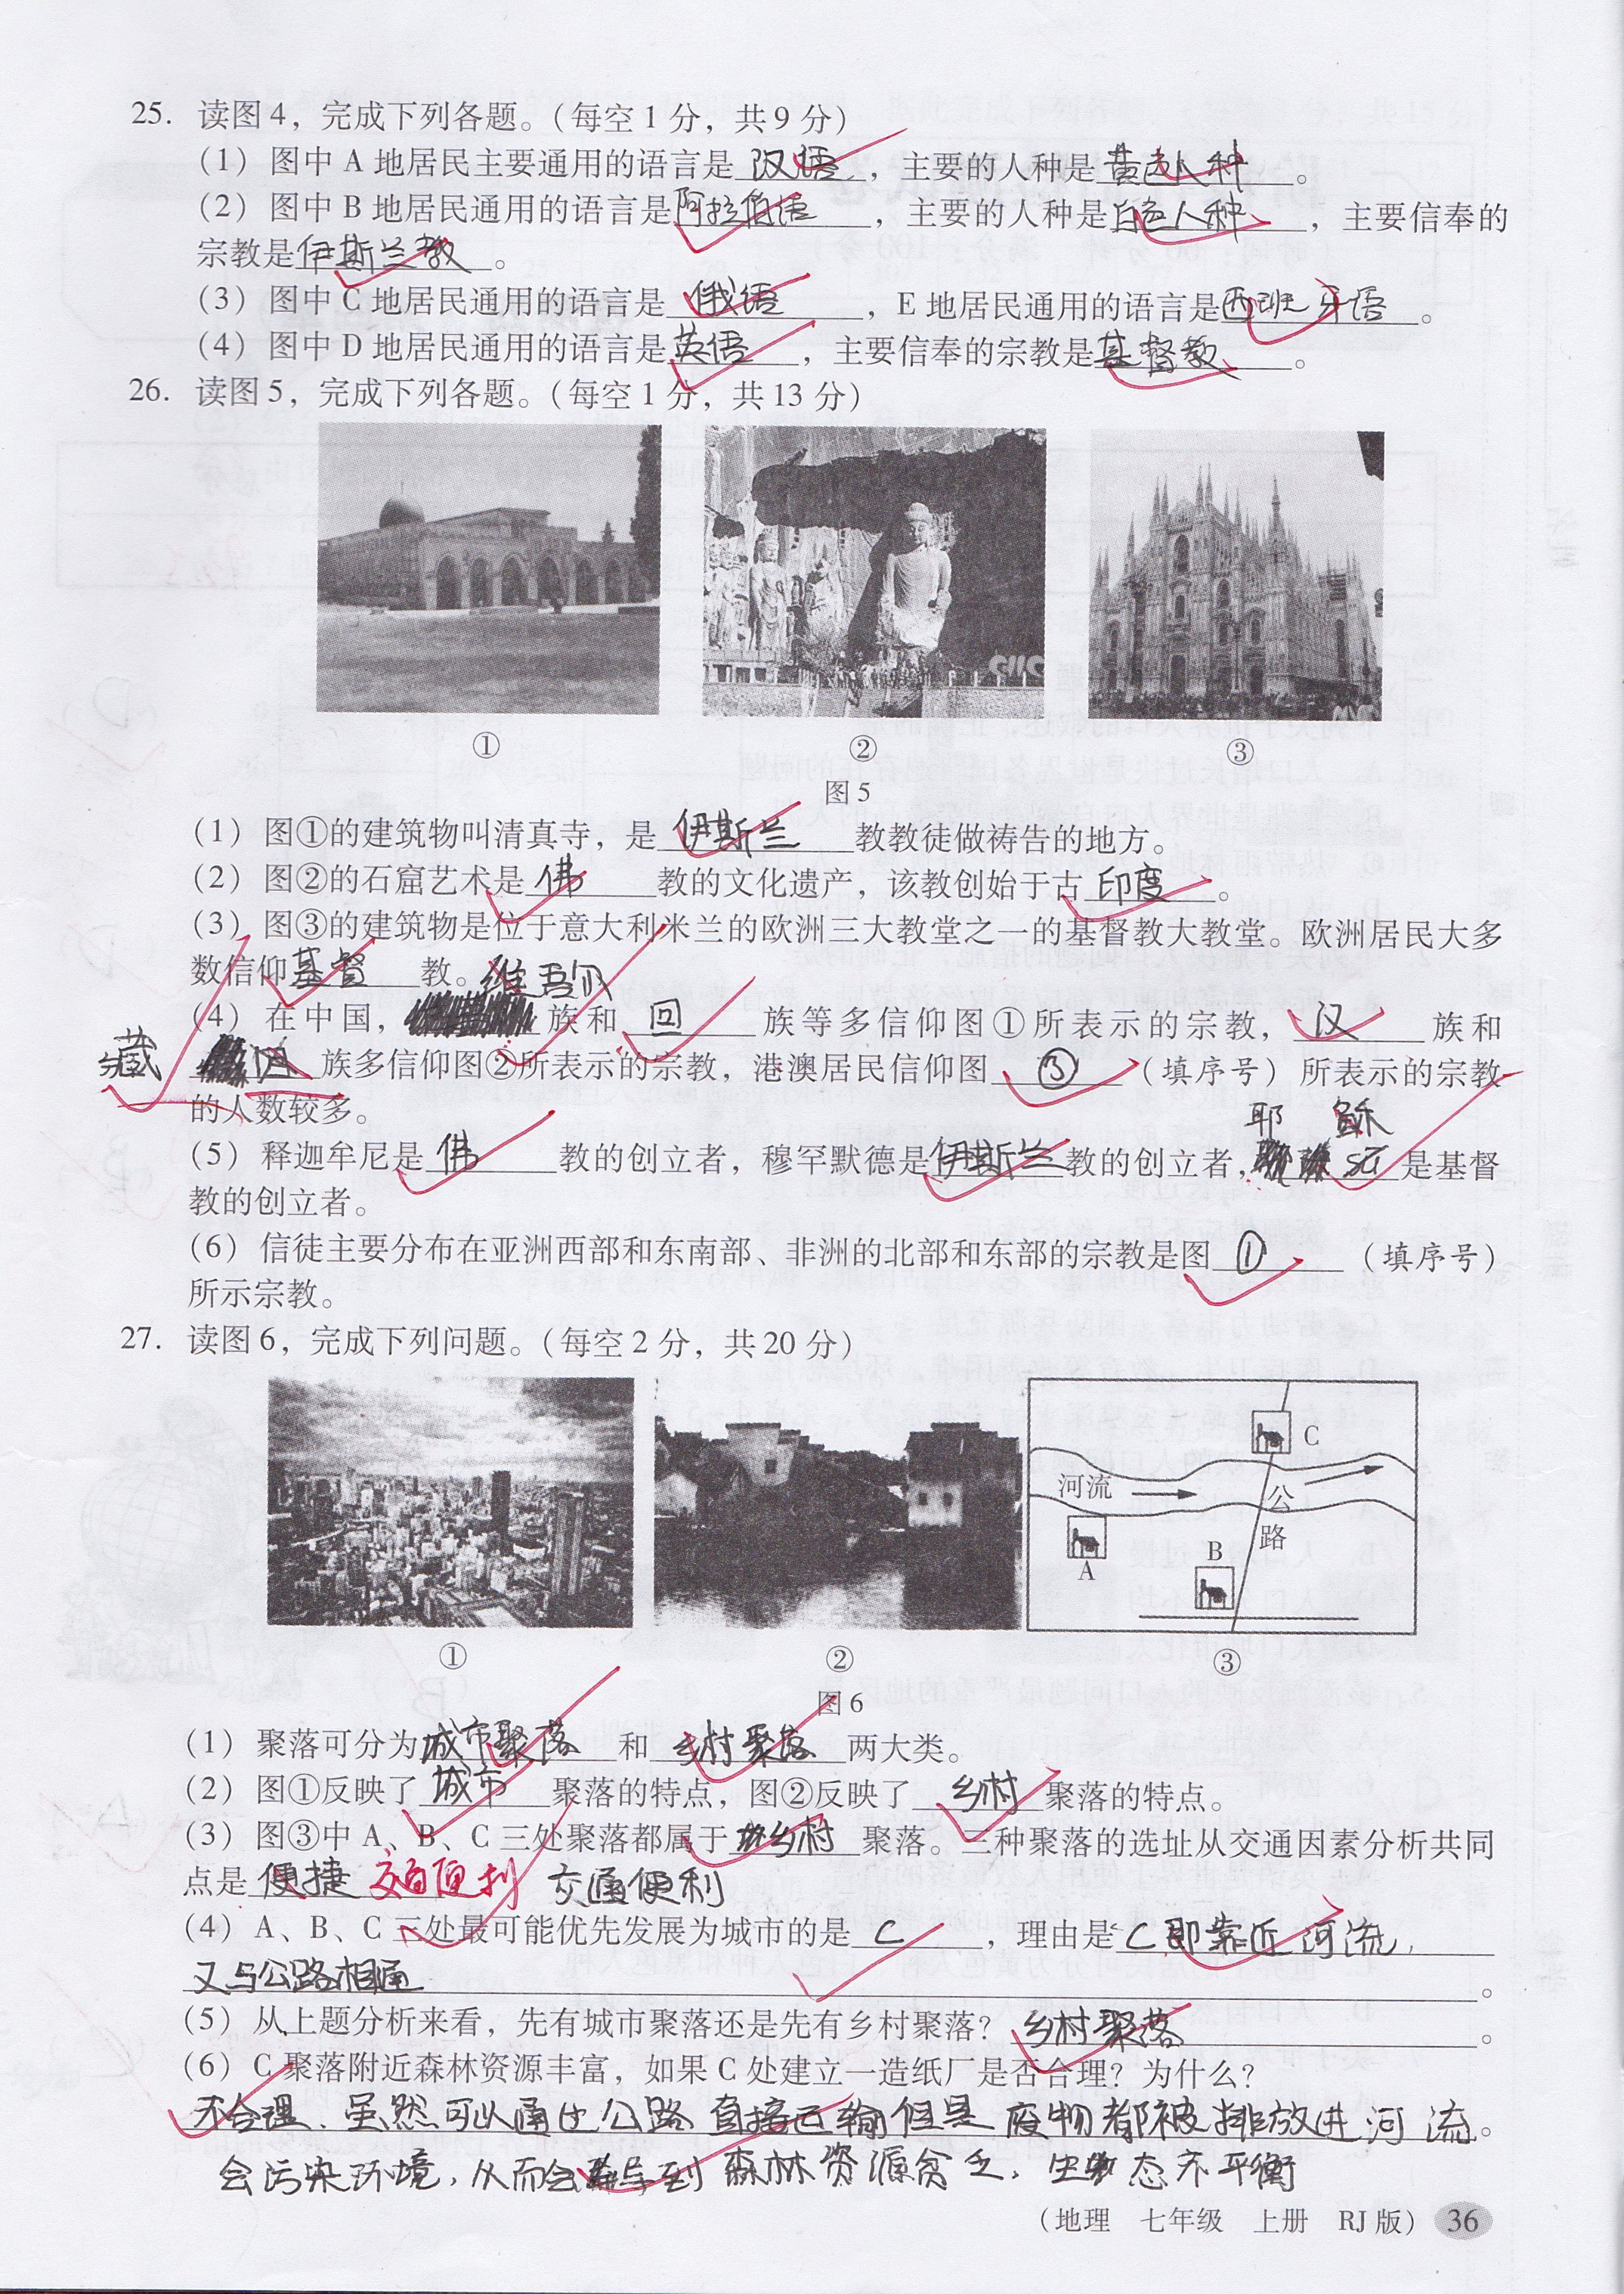 25. 读图4，完成下列各题。（每空1分，共9分）
（1）图中A地居民主要通用的语言是汉语，主要的人种是黄色人种。
（2）图中B地居民通用的语言是阿拉伯语，主要的人种是白色人种，主要信奉的
宗教是伊斯兰教。
（3）图中C地居民通用的语言是俄语，E地居民通用的语言是西班牙语。
（4）图中D地居民通用的语言是英语，主要信奉的宗教是基督教。
26. 读图5，完成下列各题。（每空1分，共13分）
① ② ③
图5
（1）图①的建筑物叫清真寺，是伊斯兰教教徒做祷告的地方。
（2）图②的石窟艺术是佛教的文化遗产，该教创始于古印度。
（3）图③的建筑物是位于意大利米兰的欧洲三大教堂之一的基督教大教堂。欧洲居民大多
数信仰基督教。
维吾尔
（4）在中国，族和回族等多信仰图①所表示的宗教，汉族和
藏族多信仰图②所表示的宗教，港澳居民信仰图③（填序号）所表示的宗教
的人数较多。
耶稣
（5）释迦牟尼是佛教的创立者，穆罕默德是伊斯兰教的创立者，是基督
教的创立者。
（6）信徒主要分布在亚洲西部和东南部、非洲的北部和东部的宗教是图①（填序号）
所示宗教。
27. 读图6，完成下列问题。（每空2分，共20分）
C
河流
公
路
A
B
① ② ③
图6
（1）聚落可分为城市聚落和乡村聚落两大类。
（2）图①反映了城市聚落的特点，图②反映了乡村聚落的特点。
（3）图③中A、B、C三处聚落都属于乡村聚落。三种聚落的选址从交通因素分析共同
点是便捷 交通便利 交通便利
（4）A、B、C三处最可能优先发展为城市的是C，理由是C即靠近河流，
又与公路相通。
（5）从上题分析来看，先有城市聚落还是先有乡村聚落？乡村聚落。
（6）C聚落附近森林资源丰富，如果C处建立一造纸厂是否合理？为什么？
不合理．虽然可以通过公路直接运输但是废物都被排放进河流。
会污染环境，从而会导到森林资源贫乏，生态不平衡
（地理 七年级 上册 RJ版） 36